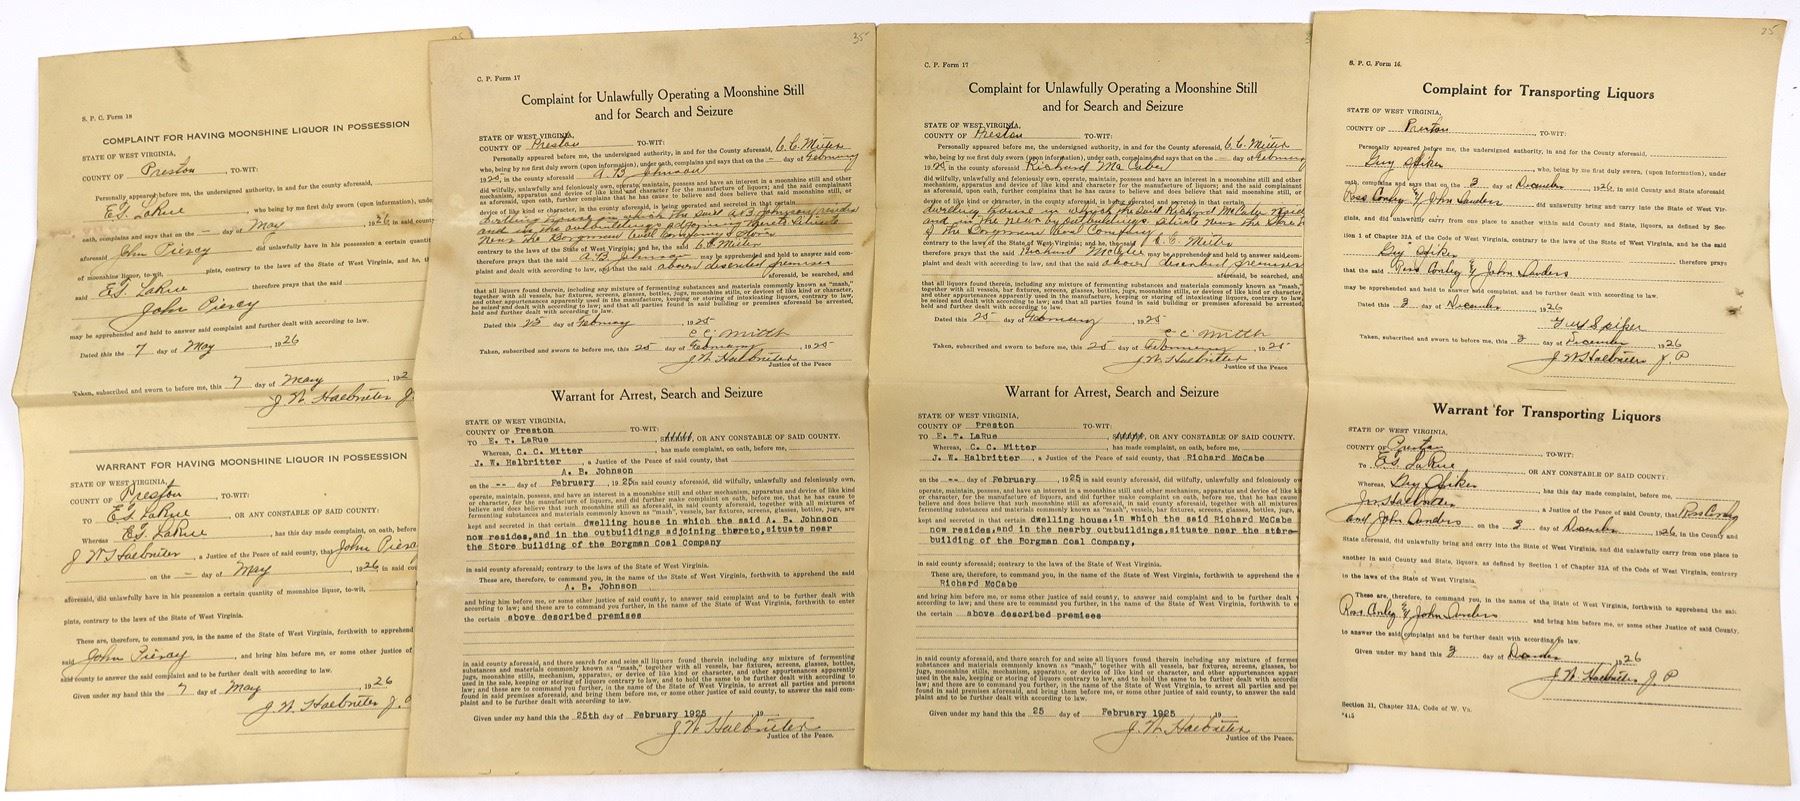 S. P. C. Form 18
COMPLAINT FOR HAVING MOONSHINE LIQUOR IN POSSESSION
STATE OF WEST VIRGINIA,
COUNTY OF Preston, TO-WIT:
Personally appeared before me, the undersigned authority, in and for the County aforesaid,
E.T. LaRue, who being by me first duly sworn (upon information), under
oath, complains and says that on the — day of May, 1926 in said county
aforesaid John Piercy did unlawfully have in his possession a certain quantity
of moonshine liquor, to-wit, pints, contrary to the laws of the State of West Virginia, and he, the
said E.T. LaRue therefore prays that the said
John Piercy
may be apprehended and held to answer said complaint and further dealt with according to law.
Dated this the 7 day of May, 1926
Taken, subscribed and sworn to before me, this 7 day of May, 192
J. W. Halbritter J.
WARRANT FOR HAVING MOONSHINE LIQUOR IN POSSESSION
STATE OF WEST VIRGINIA,
COUNTY OF Preston, TO-WIT:
TO E.T. LaRue, OR ANY CONSTABLE OF SAID COUNTY:
Whereas E.T. LaRue, has this day made complaint, on oath, before
J W Halbritter, a Justice of the Peace of said county, that John Piercy
on the — day of May, 1926 in said cou
aforesaid, did unlawfully have in his possession a certain quantity of moonshine liquor, to-wit,
pints, contrary to the laws of the State of West Virginia.
These are, therefore, to command you, in the name of the State of West Virginia, forthwith to apprehend
said John Piercy, and bring him before me, or some other justice of
said county to answer the said complaint and to be further dealt with according to law.
Given under my hand this the 7 day of May, 1926
J. W. Halbritter J.
35
C. P. Form 17
Complaint for Unlawfully Operating a Moonshine Still
and for Search and Seizure
STATE OF WEST VIRGINIA,
COUNTY OF Preston TO-WIT:
Personally appeared before me, the undersigned authority, in and for the County aforesaid, C.C. Mitter
who, being by me first duly sworn (upon information), under oath, complains and says that on the — day of February
1925, in the county aforesaid, A. B. Johnson
did willfully, unlawfully and feloniously own, operate, maintain, possess and have an interest in a moonshine still and other
mechanism, apparatus and device of like kind and character for the manufacture of liquors; and the said complainant
aforesaid, upon oath, further complains that he has cause to believe and does believe that said moonshine still, or
device of like kind or character, is being operated and secreted in that certain
dwelling house in which the said A.B. Johnson resides
and in the outbuildings adjoining thereto situate
near the Borgman Coal Company's Store
contrary to the laws of the State of West Virginia; and he, the said C.C. Mitter
therefore prays that the said A.B. Johnson may be apprehended and held to answer said com-
plaint and dealt with according to law, and that the said above described premises
aforesaid, be searched, and
that all liquors found therein, including any mixture of fermenting substances and materials commonly known as "mash,"
together with all vessels, bar fixtures, screens, glasses, bottles, jugs, moonshine stills, or devices of like kind or character,
and other appurtenances apparently used in the manufacture, keeping or storing of intoxicating liquors, contrary to law,
be seized and dealt with according to law; and that all parties found in said building or premises aforesaid be arrested,
held and further dealt with according to law.
Dated this 25 day of February, 1925
C C Mitter
Taken, subscribed and sworn to before me, this 25 day of February, 1925
J. W. Halbritter
Justice of the Peace
Warrant for Arrest, Search and Seizure
STATE OF WEST VIRGINIA,
COUNTY OF Preston TO-WIT:
TO E. T. LaRue, OR ANY CONSTABLE OF SAID COUNTY.
Whereas, C. C. Mitter, has made complaint, on oath, before me,
J. W. Halbritter, a Justice of the Peace of said county, that
A. B. Johnson
on the -- day of February, 1925 in said county aforesaid, did willfully, unlawfully and feloniously own,
operate, maintain, possess and have an interest in a moonshine still and other mechanism, apparatus and device of like kind
kept and secreted in that certain dwelling house in which the said A. B. Johnson
now resides, and in the outbuildings adjoining thereto, situate near
the Store building of the Borgman Coal Company
in said county aforesaid; contrary to the laws of the State of West Virginia.
These are, therefore, to command you, in the name of the State of West Virginia, forthwith to apprehend the said
A. B. Johnson
and bring him before me, or some other justice of said county, to answer said complaint and to be further dealt with
according to law; and these are to command you further, in the name of the State of West Virginia, forthwith to enter
the certain above described premises
in said county aforesaid, and there search for and seize all liquors found therein including any mixture of fermenting
substances and materials commonly known as "mash," together with all vessels, bar fixtures, screens, glasses, bottles,
jugs, moonshine stills, mechanism, apparatus, or device of like kind or character, and other appurtenances apparently
used in the sale, keeping or storing of liquors contrary to law, and to hold the same to be further dealt with according to
law; and these are to command you further, in the name of the State of West Virginia, to arrest all parties and persons
found in said premises aforesaid, and bring them before me, or some other justice of said county, to answer the said com-
plaint and to be further dealt with according to law.
Given under my hand this the 25th day of February 1925 19
J. W. Halbritter
Justice of the Peace.
C. P. Form 17
Complaint for Unlawfully Operating a Moonshine Still
and for Search and Seizure
STATE OF WEST VIRGINIA,
COUNTY OF Preston TO-WIT:
Personally appeared before me, the undersigned authority, in and for the County aforesaid, C.C. Mitter
who, being by me first duly sworn (upon information), under oath, complains and says that on the — day of February
1925, in the county aforesaid, Richard McCabe
did willfully, unlawfully and feloniously own, operate, maintain, possess and have an interest in a moonshine still and other
mechanism, apparatus and device of like kind and character for the manufacture of liquors; and the said complainant
aforesaid, upon oath, further complains that he has cause to believe and does believe that said moonshine still, or
device of like kind or character, is being operated and secreted in that certain
dwelling house in which the said Richard McCabe resid
and in the near by outbuildings situate near the Store
of the Borgman Coal Company
contrary to the laws of the State of West Virginia; and he, the said C.C. Mitter
therefore prays that the said Richard McCabe may be apprehended and held to answer said com-
plaint and dealt with according to law, and that the said above described premises
aforesaid, be searched, and
that all liquors found therein, including any mixture of fermenting substances and materials commonly known as "mash,"
together with all vessels, bar fixtures, screens, glasses, bottles, jugs, moonshine stills, or devices of like kind or character,
and other appurtenances apparently used in the manufacture, keeping or storing of intoxicating liquors, contrary to law,
be seized and dealt with according to law; and that all parties found in said building or premises aforesaid be arrested,
held and further dealt with according to law.
Dated this 25 day of February, 1925
C C Mitter
Taken, subscribed and sworn to before me, this 25 day of February, 1925
J. W. Halbritter
Justice of the Peace
Warrant for Arrest, Search and Seizure
STATE OF WEST VIRGINIA,
COUNTY OF Preston TO-WIT:
TO E. T. LaRue, OR ANY CONSTABLE OF SAID COUNTY.
Whereas, C. C. Mitter, has made complaint, on oath, before me,
J. W. Halbritter, a Justice of the Peace of said county, that Richard McCabe
on the -- day of February, 1925 in said county aforesaid, did willfully, unlawfully and feloniously ow
operate, maintain, possess and have an interest in a moonshine still and other mechanism, apparatus and device of like kind
kept and secreted in that certain dwelling house in which the said Richard McCabe
now resides, and in the nearby outbuildings, situate near the store-
building of the Borgman Coal Company,
in said county aforesaid; contrary to the laws of the State of West Virginia.
These are, therefore, to command you, in the name of the State of West Virginia, forthwith to apprehend the s
Richard McCabe
and bring him before me, or some other justice of said county, to answer said complaint and to be further dealt
according to law; and these are to command you further, in the name of the State of West Virginia, forthwith to e
the certain above described premises
in said county aforesaid, and there search for and seize all liquors found therein including any mixture of fermen
substances and materials commonly known as "mash," together with all vessels, bar fixtures, screens, glasses, bo
jugs, moonshine stills, mechanism, apparatus, or device of like kind or character, and other appurtenances apparen
used in the sale, keeping or storing of liquors contrary to law, and to hold the same to be further dealt with according
law; and these are to command you further, in the name of the State of West Virginia, to arrest all parties and pe
found in said premises aforesaid, and bring them before me, or some other justice of said county, to answer the said
plaint and to be further dealt with according to law.
Given under my hand this the 25 day of February 1925 19
J. W. Halbritter
Justice of the Peace.
35
S. P. C. Form 16.
Complaint for Transporting Liquors
STATE OF WEST VIRGINIA,
COUNTY OF Preston, TO-WIT:
Personally appeared before me, the undersigned authority, in and for the County aforesaid,
Guy Spiker, who, being by me first duly sworn, (upon information), under
oath, complains and says that on the 3 day of December, 1926, in said County and State aforesaid
Ross Conley & John Sanders did unlawfully bring and carry into the State of West Vir-
ginia, and did unlawfully carry from one place to another within said County and State, liquors, as defined by Sec-
tion 1 of Chapter 32A of the Code of West Virginia, contrary to the laws of the State of West Virginia, and he the said
Guy Spiker therefore prays
that the said Ross Conley & John Sanders
may be apprehended and held to answer said complaint and be further dealt with according to law.
Dated this 3 day of December, 1926
Guy Spiker
Taken, subscribed and sworn to before me, this 3 day of December, 1926
J. W. Halbritter J. P
Warrant for Transporting Liquors
STATE OF WEST VIRGINIA,
COUNTY OF Preston, TO-WIT:
TO E.T. LaRue OR ANY CONSTABLE OF SAID COUNTY:
Whereas, Guy Spiker, has this day made complaint, before me,
J W Halbritter, a Justice of the Peace of said County, that Ross Conley
and John Sanders on the 3 day of December 1926, in the County and
State aforesaid, did unlawfully bring and carry into the State of West Virginia, and did unlawfully carry from one place to
another in said County and State, liquors, as defined by Section 1 of Chapter 32A of the Code of West Virginia, contrary
to the laws of the State of West Virginia.
These are, therefore, to command you, in the name of the State of West Virginia, forthwith to apprehend the said
Ross Conley & John Sanders and bring him before me, or some other Justice of said County,
to answer the said complaint and be further dealt with according to law.
Given under my hand this 3 day of December 1926
J. W. Halbritter J. P
Section 31, Chapter 32A, Code of W. Va.
*415